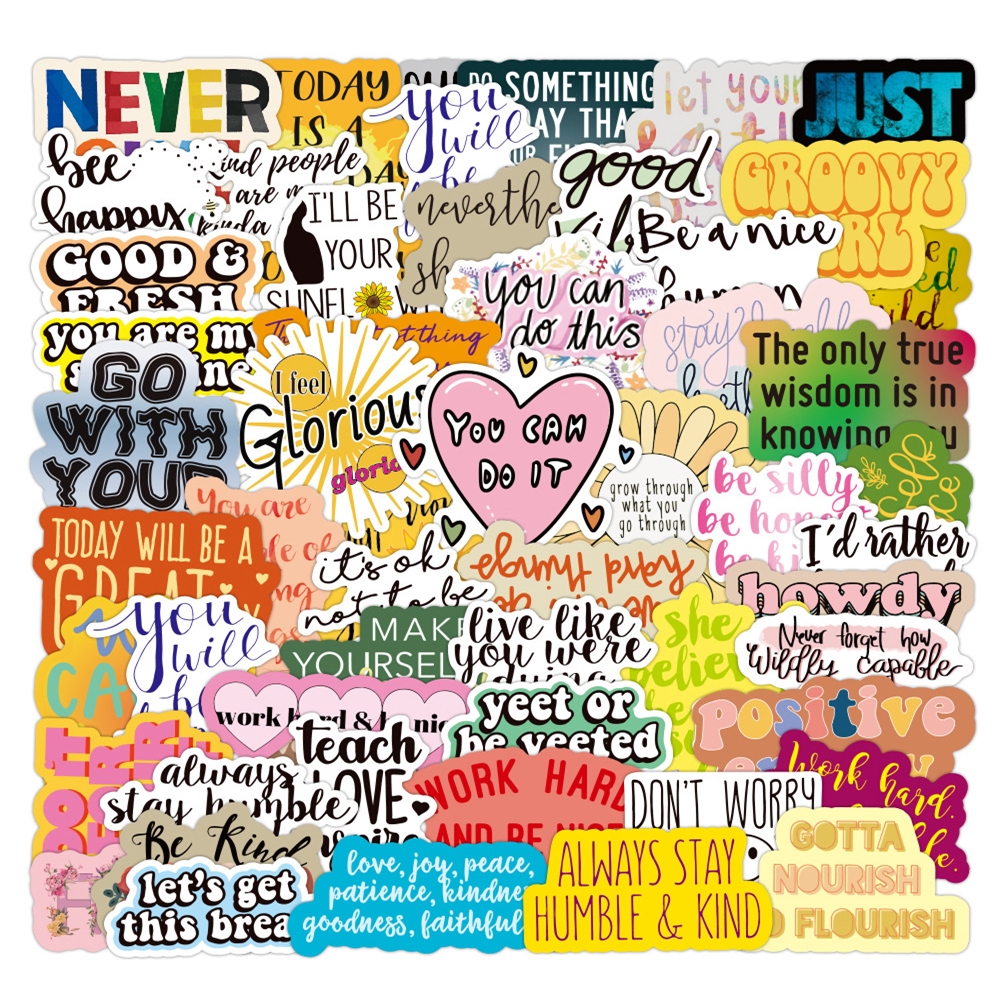 NEVER
TODAY
IS A
DO SOMETHING
DAY THA
you
will
be
let your
JUST
bee
happy
kind people
are
kinda
I'LL BE
YOUR
SUNFL W
neverthe
sh
good
Be a nice
human
GROOVY
GOOD &
FRESH
you can
do this
stay humble
you are my
thing
GO
WITH
YOU
I feel
Glorious
glorio
YOU CAN
DO IT
The only true
wisdom is in
knowing you
grow through
what you
go through
be silly
be hon
be ki
I'd rather
You are
TODAY WILL BE A
GREAT
it's ok
not to be
hard things
howdy
you
will
be
CA
MAKE
YOURSEL
live like
you were
dying
she
believe
Never forget how
Wildly capable
work hard & b nice
yeet or
be yeeted
positive
DO IT
FOR
teach
LOVE
always
stay humble
WORK HARD
AND BE NICE
DON'T WORRY
Work hard.
Be Kind
let's get
this brea
love, joy, peace,
patience, kindne
goodness, faithful
ALWAYS STAY
HUMBLE & KIND
GOTTA
NOURISH
FLOURISH